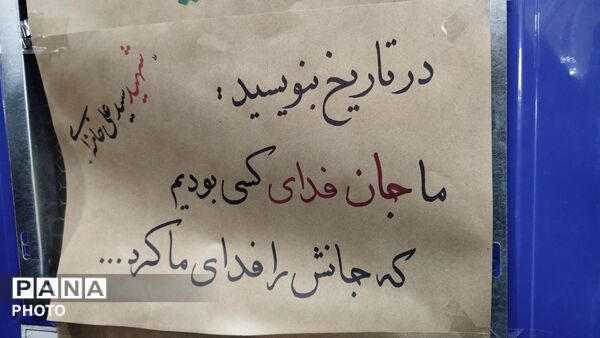 در تاریخ بنویسید:
ما جان فدای کسی بودیم
که جانش را فدای ما کرد...
شهید سید علی خامنه‌ای
PANA
PHOTO